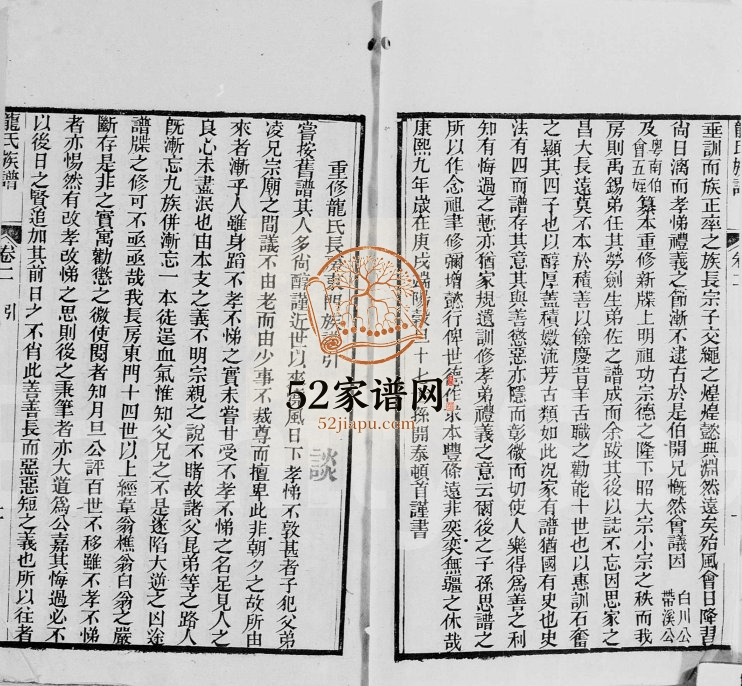 龍氏族譜
卷二
垂訓而族正率之族長宗子交繩之煌煌懿典淵然遠矣殆風會日降
尙日漓而孝悌禮義之節漸不逮右於是伯開兄慨然會議因
白川公
帶溪公
及
粤南伯
會五姪
纂本重修新牒上明祖功宗德之隆下昭大宗小宗之秩而我
房則禹錫弟任其勞劍生弟佐之譜成而余跋其後以誌不忘因思家之
昌大長遠莫不本於積善以餘慶昔羊舌職之勸能十世也以惠訓石奮
之顯其四子也以醇厚蓋積媺流芳古類如此况家有譜猶國有史也史
法有四而譜存其意其與善懲惡亦隱而彰微而切使人樂得爲善之利
知有悔過之慙亦猶家規遺訓修孝弟禮義之意云爾後之子孫思譜之
所以作念祖聿修彌增懿行俾世德作求本豐條遠非奕奕無疆之休哉
康熙九年歲在庚戌端陽 十七 孫開泰頓首謹書
重修龍氏長 東門族 引
嘗按舊譜其人多尙醇謹近世以來 風日下孝悌不敦甚者子犯父弟
凌兄宗廟之間議不由老而由少事不裁尊而擅卑此非朝夕之故所由
來者漸乎人雖身蹈不孝不悌之實未嘗甘受不孝不悌之名足見人之
良心未盡泯也由本支之義不明宗親之說不睹故諸父昆弟等之路人
旣漸忘九族併漸忘一本徒逞血氣惟知父兄之不是遂陷大逆之凶途
譜牒之修可不亟亟哉我長房東門十四世以上經韋翁樵翁白翁之嚴
斷存是非之實寓勸懲之微使閱者知月旦公評百世不移雖不孝不悌
者亦惕然有改孝改悌之思則後之秉筆者亦大道爲公嘉其悔過必不
以後日之賢追加其前日之不肖此善善長而惡惡短之義也所以往者
龍氏族譜
卷二
引
談
52家谱网
52jiapu.com